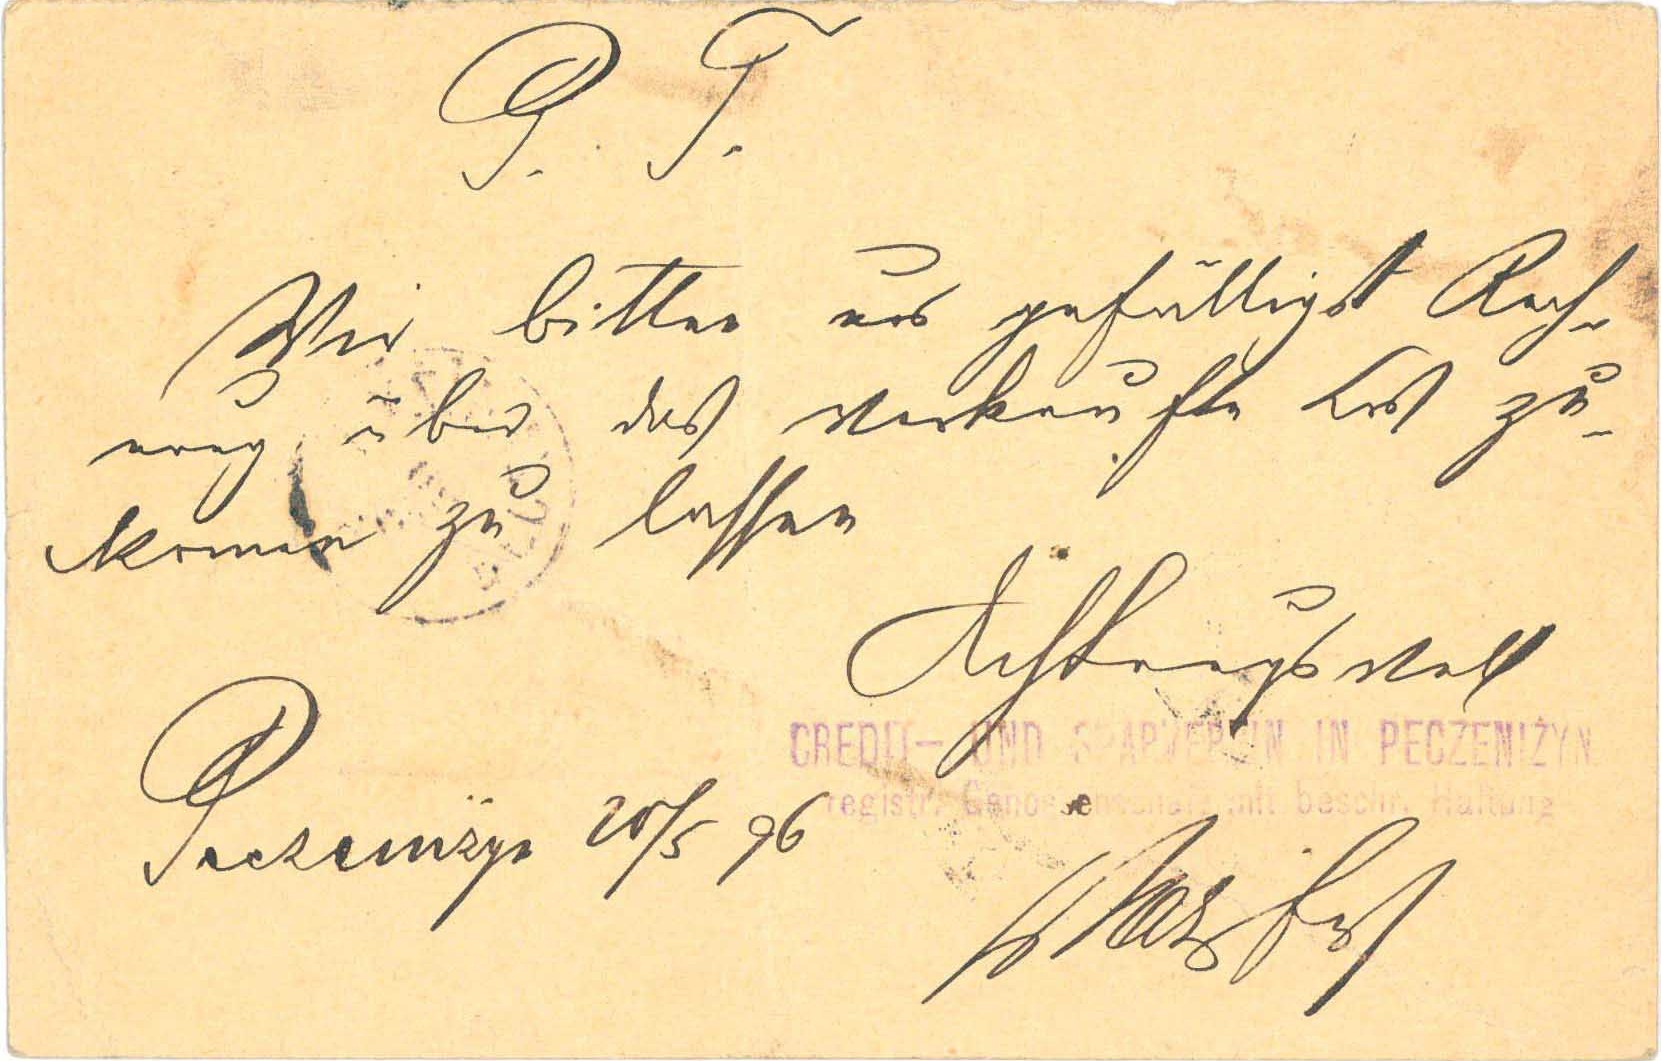 P. T.
Wir bitten uns gefälligst Rech-
nung über das verkaufte Los zu-
komen zu lassen
Achtungsvoll
CREDIT- UND SPARVEREIN IN PECZENIŻYN
registr. Genossenschaft mit beschr. Haftung
Peczeniżyn 20/5 96